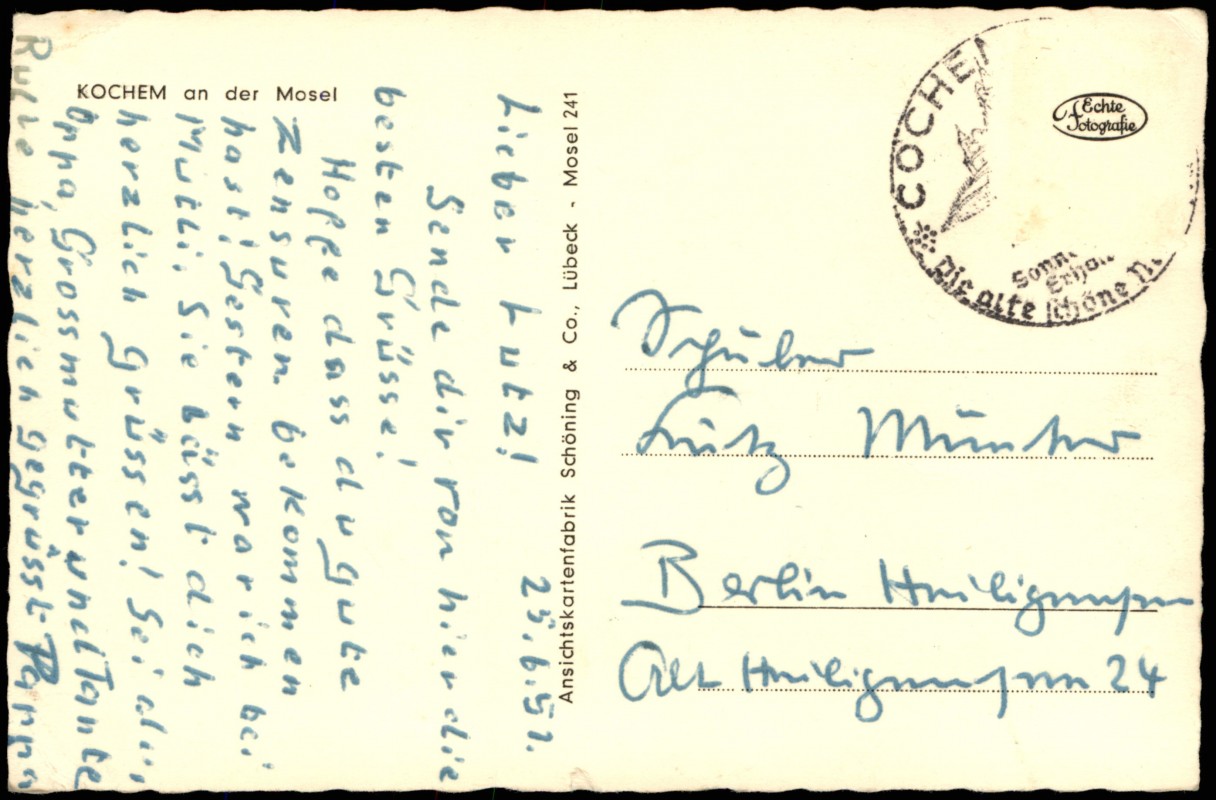 KOCHEM an der Mosel
25.6.51.
Lieber Lutz!
Sende dir von hier die
besten Grüsse!
Hoffe dass du gute
Zensuren bekommen
hast! Gestern war ich bei
Mutti. Sie lässt dich
herzlich grüssen! Sei du,
Oppa, Grossmutter und Tante
herzlich gegrüsst. Pappa
Ansichtskartenfabrik Schöning & Co., Lübeck - Mosel 241
COCHE
Sonn
Erho
Die alte schöne
Echte
Fotografie
Schüler
Lutz Münter
Berlin Heiligensee
Alt Heiligensee 24